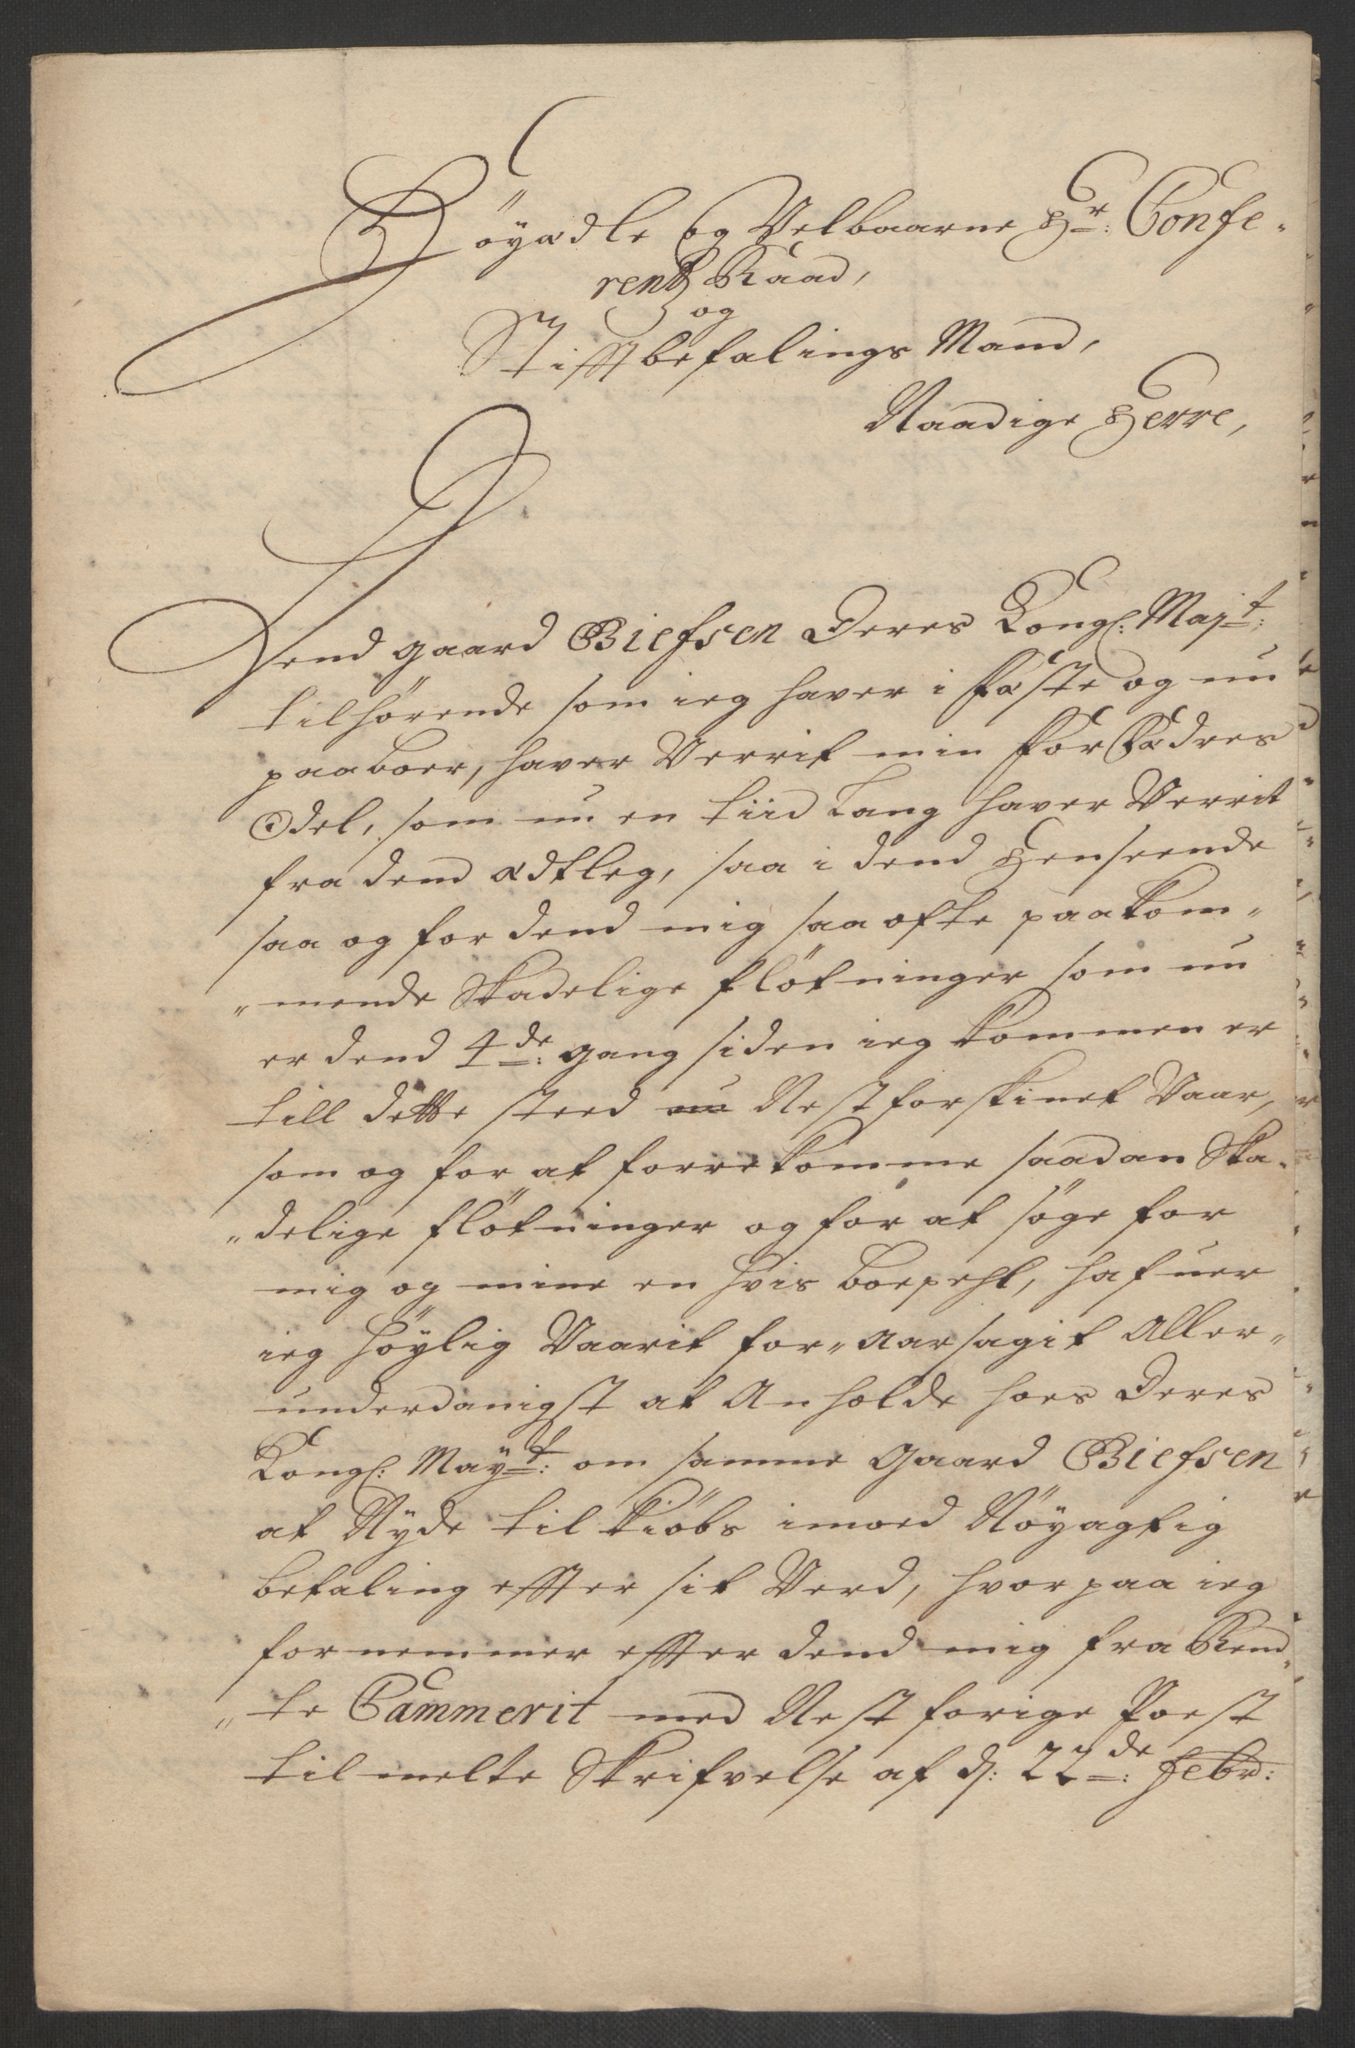 Höyædle og Velbaarne Hr: Confe-
rentz Raad,
og
Stifftbefalings Mand,
Naadige Herre,
Dend gaard Biefsen Deres Kongl: Majt:
tilhörende som ieg haver i Fæste og nu
paaboer, haver Verrit min ForFædres
Odel, som nu en tiid lang haver Verrit
fra dem ædtleg, saa i dend Henseende
saa og for dend mig saa ofte paakom„
„mende Skadelige flötninger som nu
er dend 4de: gang siden ieg kommen er
till dette sted nu Nest forskinet Vaar,
som og for at forrekomme saadan Ska„
„delige flötninger og for at söge for
mig og mine en hvis boepehl, hafuer
ieg höylig Vaarit for„aarsagit Aller„
underdanigst at Anholde hoes Deres
Kongl: Mayt: om samme gaard Biefsen
at Nyde til kiöbs imoed Nöyagtig
betaling effter sit Verd, hvorpaa ieg
fornemmer effter dend mig fra Rend„
„te Cammerit med Nest forige Poest
tilmelte Skrifvelse af d: 22de: Febr: